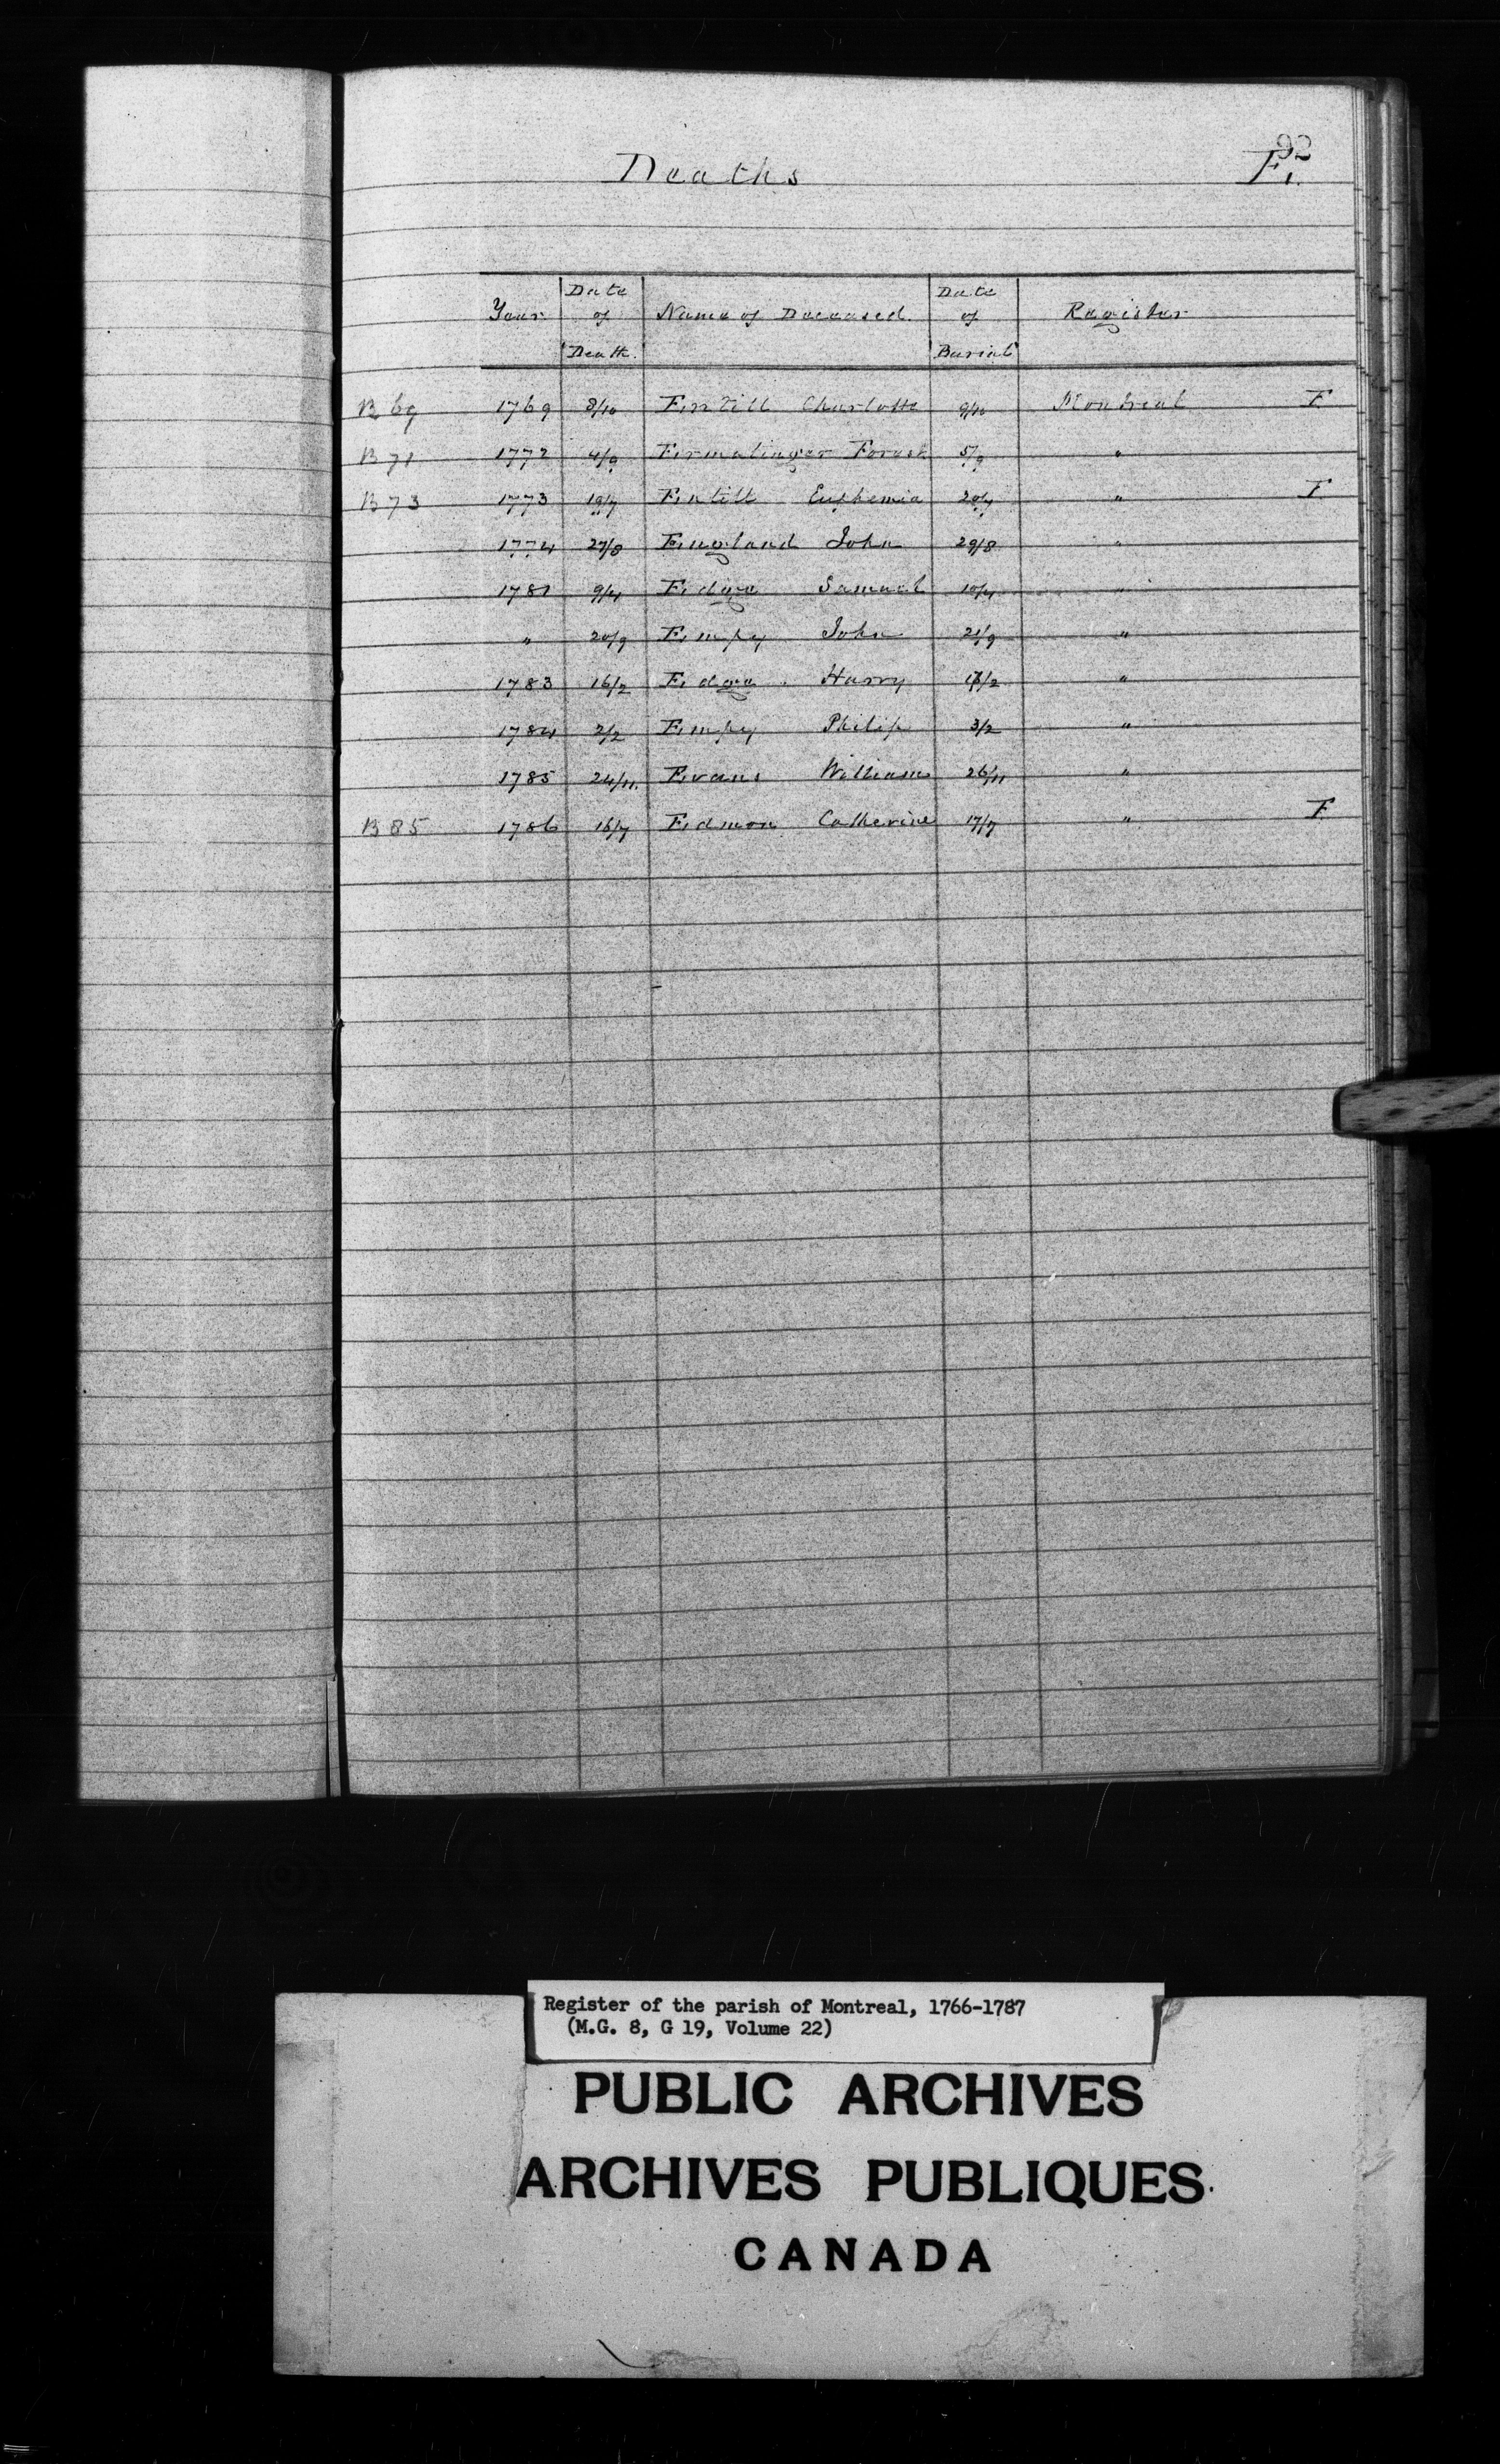 92
Deaths E.
Year Date of Death. Name of Deceased. Date of Burial Register
B 69 1769 8/10 Entill Charlotte 9/10 Montreal F
B 71 1772 4/9 Ermatinger 5/9 "
B 73 1773 19/7 Entill Euphemia 20/7 " F
1774 27/8 England John 29/8 "
1781 9/4 Edge Samuel 10/4 "
" 20/9 Empy John 21/9 "
1783 16/2 Edge Harry 17/2 "
1784 2/2 Empy Philip 3/2 "
1785 24/11. Evans William 26/11 "
B 85 1786 16/7 Edmon Catherine 17/7 " F
Register of the parish of Montreal, 1766-1787
(M.G. 8, G 19, Volume 22)
PUBLIC ARCHIVES
ARCHIVES PUBLIQUES
CANADA